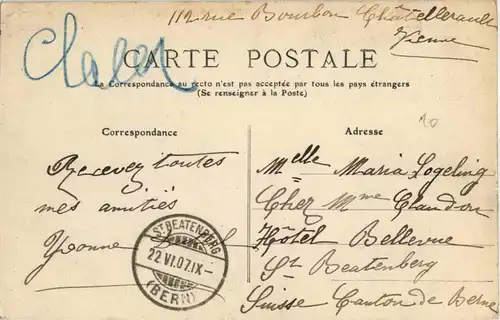 112 rue Bourbon Châtellerault
Vienne
CARTE POSTALE
La Correspondance au recto n'est pas acceptée par tous les pays étrangers
(Se renseigner à la Poste)
Correspondance
Recevez toutes
mes amitiés
Yvonne
Adresse
Melle Maria Logeling
Chez Mme Claudon
Hôtel Bellevue
St Beatenberg
Suisse Canton de Berne
ST. BEATENBERG
22.VI.07.IX-
(BERN)